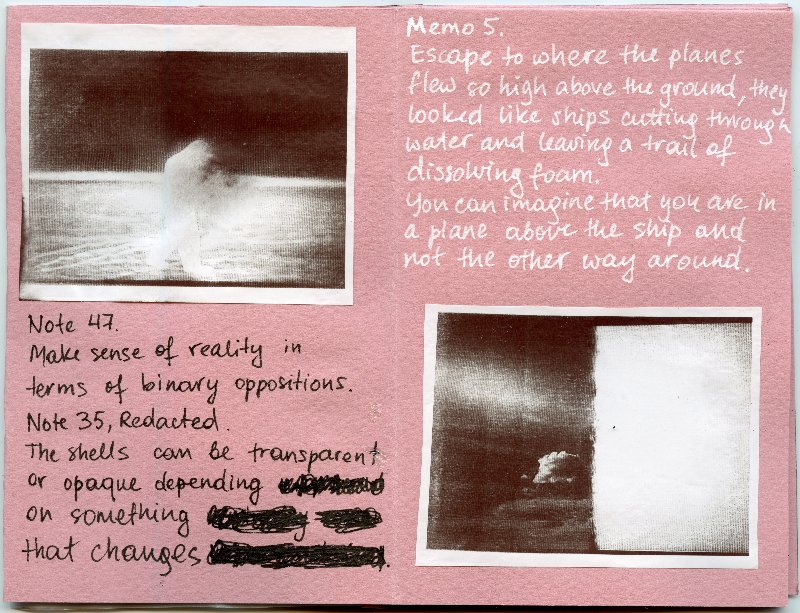 Note 47.
Make sense of reality in
terms of binary oppositions.
Note 35, Redacted.
The shells can be transparent
or opaque depending
on something
that changes .
Memo 5.
Escape to where the planes
flew so high above the ground, they
looked like ships cutting through
water and leaving a trail of
dissolving foam.
You can imagine that you are in
a plane above the ship and
not the other way around.